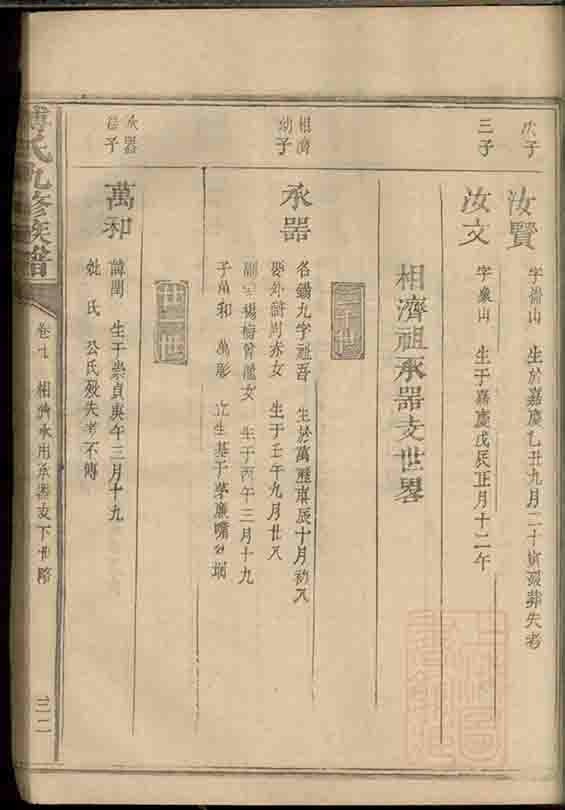 次子
汝賢
字尚山 生於嘉慶乙丑九月二十寅殁葬失考
三子
汝文
字象山 生于嘉慶戊辰正月十二午
相濟祖承器支世畧
二十世
相濟
幼子
承器
名錫九字祖吾 生於萬歷庚辰十月初八
娶外 周亦女 生于壬午九月廿八
副室楊梅曾 女 生于丙午三月十九
子萬和 萬彪 立生基于茅 嘴
廿一世
承器
長子
萬和
諱閏 生于崇貞庚午三月十九
妣 氏 公氏殁失考不傳
傅氏九修族譜
卷七 相濟承用承器支下世略
三二